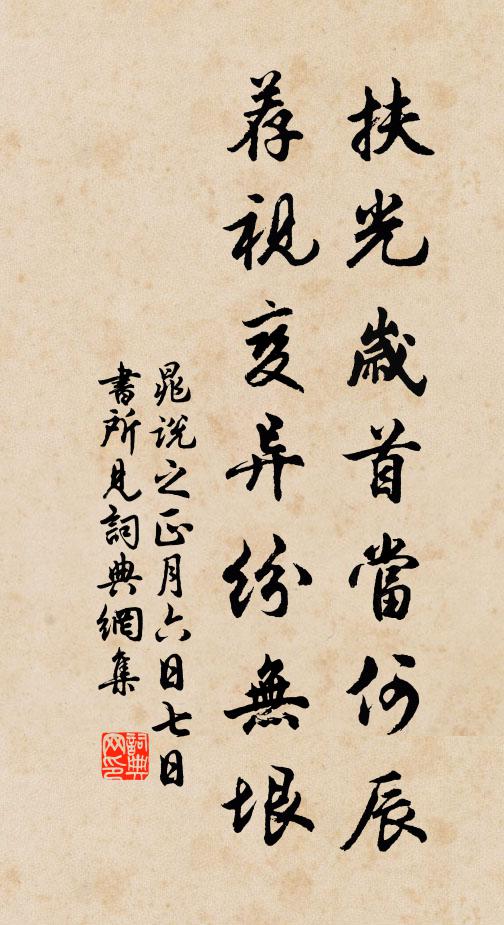 扶光歲首當何辰
荐視变异紛無垠
晁説之正月六日七日
書所見詞典網集
詞典网印